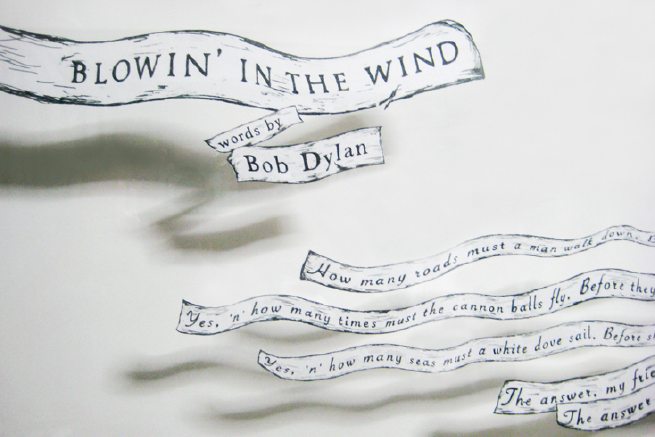 BLOWIN' IN THE WIND
words by
Bob Dylan
How many roads must a man walk down.
Yes, 'n' how many times must the cannon balls fly. Before they
Yes, 'n' how many seas must a white dove sail. Before
The answer, my
The answer